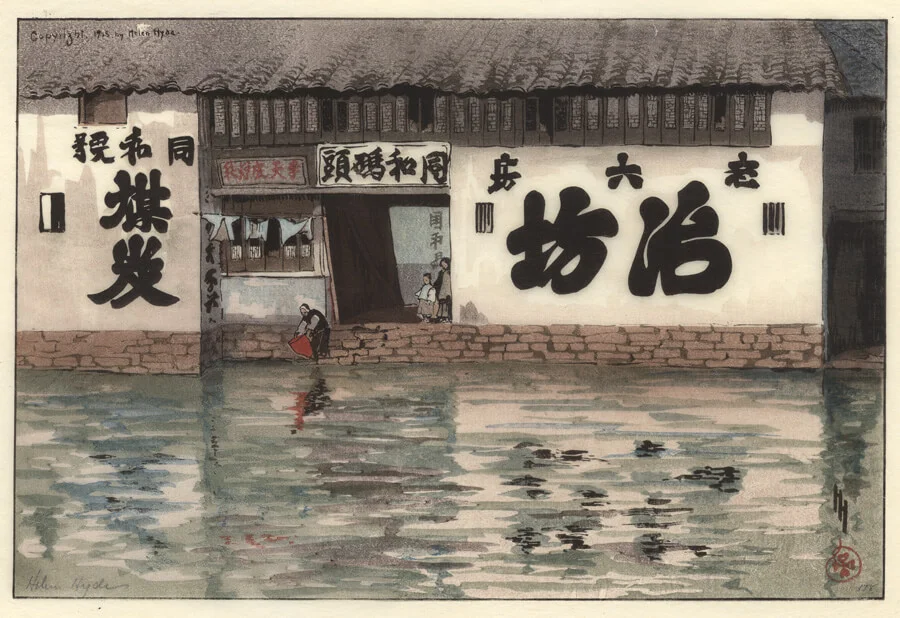 Copyright, 1915 by Helen Hyde.
同和號
煤炭
同和碼頭
同和
老六房
冶坊
Helen Hyde